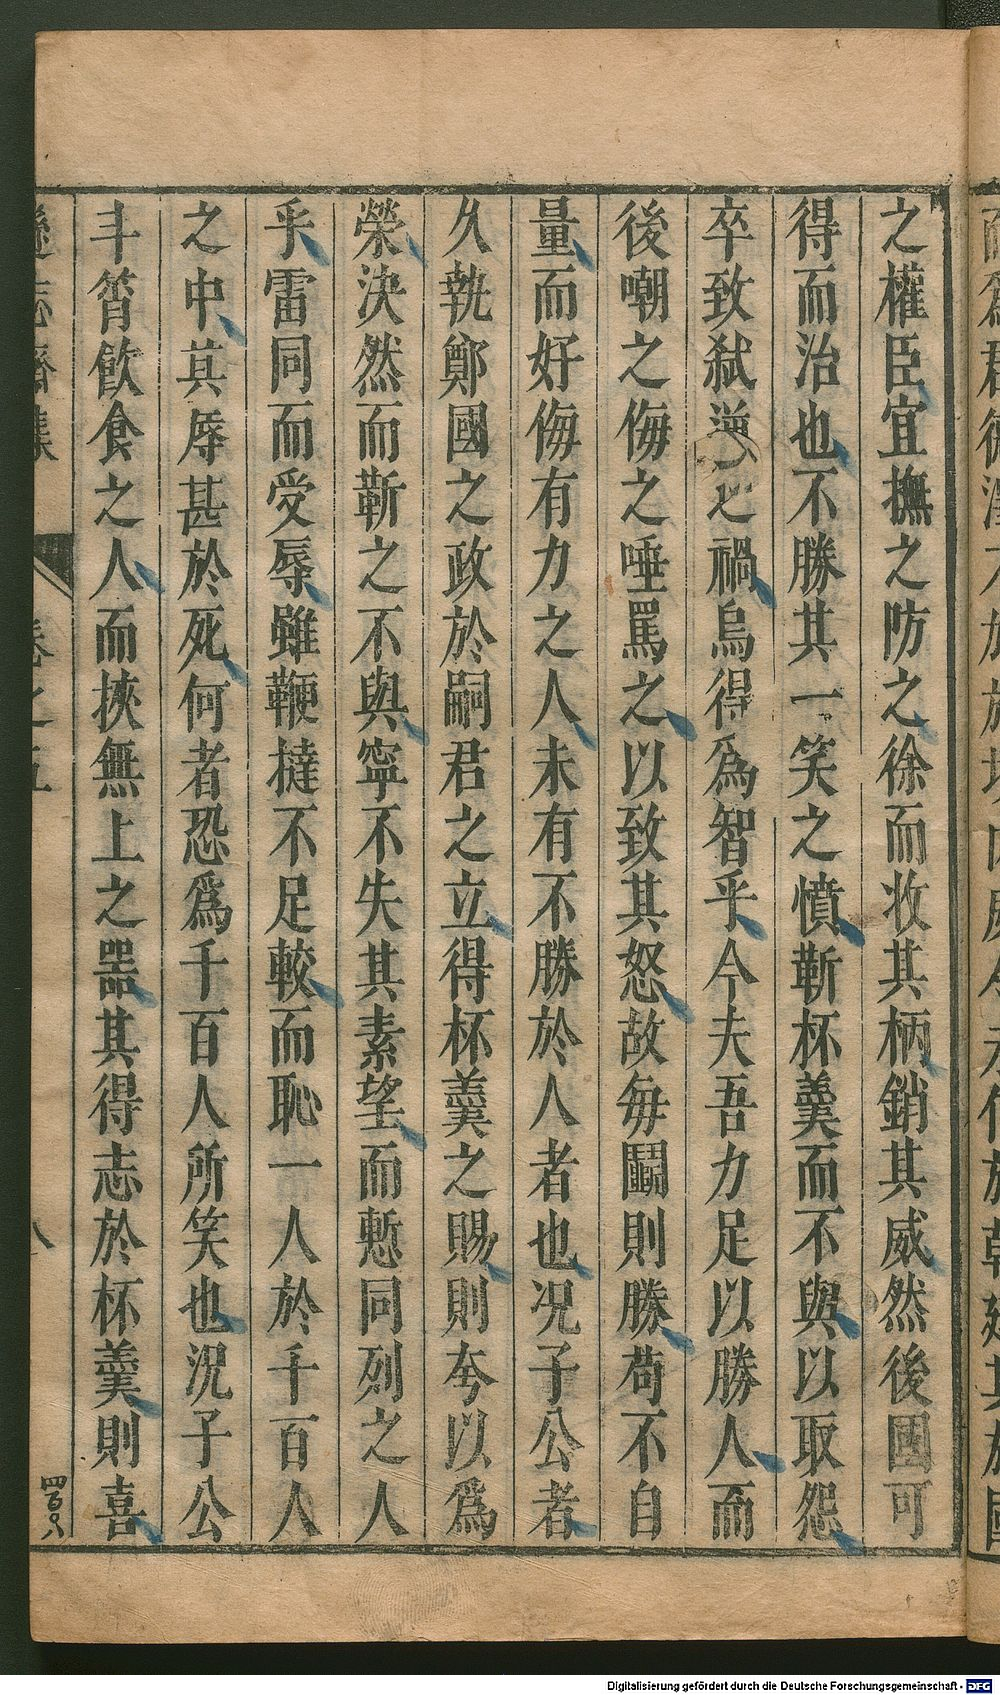 之權臣宜撫之防之徐而收其柄銷其威然後國可
得而治也不勝其一笑之憤靳杯羹而不與以取怨
卒致弑逆之禍烏得爲智乎今夫吾力足以勝人而
後嘲之侮之唾罵之以致其怒故每鬭則勝苟不自
量而好侮有力之人未有不勝於人者也况子公者
久執鄭國之政於嗣君之立得杯羹之賜則夸以爲
榮決然而靳之不與寧不失其素望而慙同列之人
乎雷同而受辱雖鞭撻不足較而恥一人於千百人
之中其辱甚於死何者恐爲千百人所笑也况子公
斗筲飲食之人而挾無上之器其得志於杯羹則喜
遜志齋集 卷之五 八
四百〇八
Digitalisierung gefördert durch die Deutsche Forschungsgemeinschaft - DFG